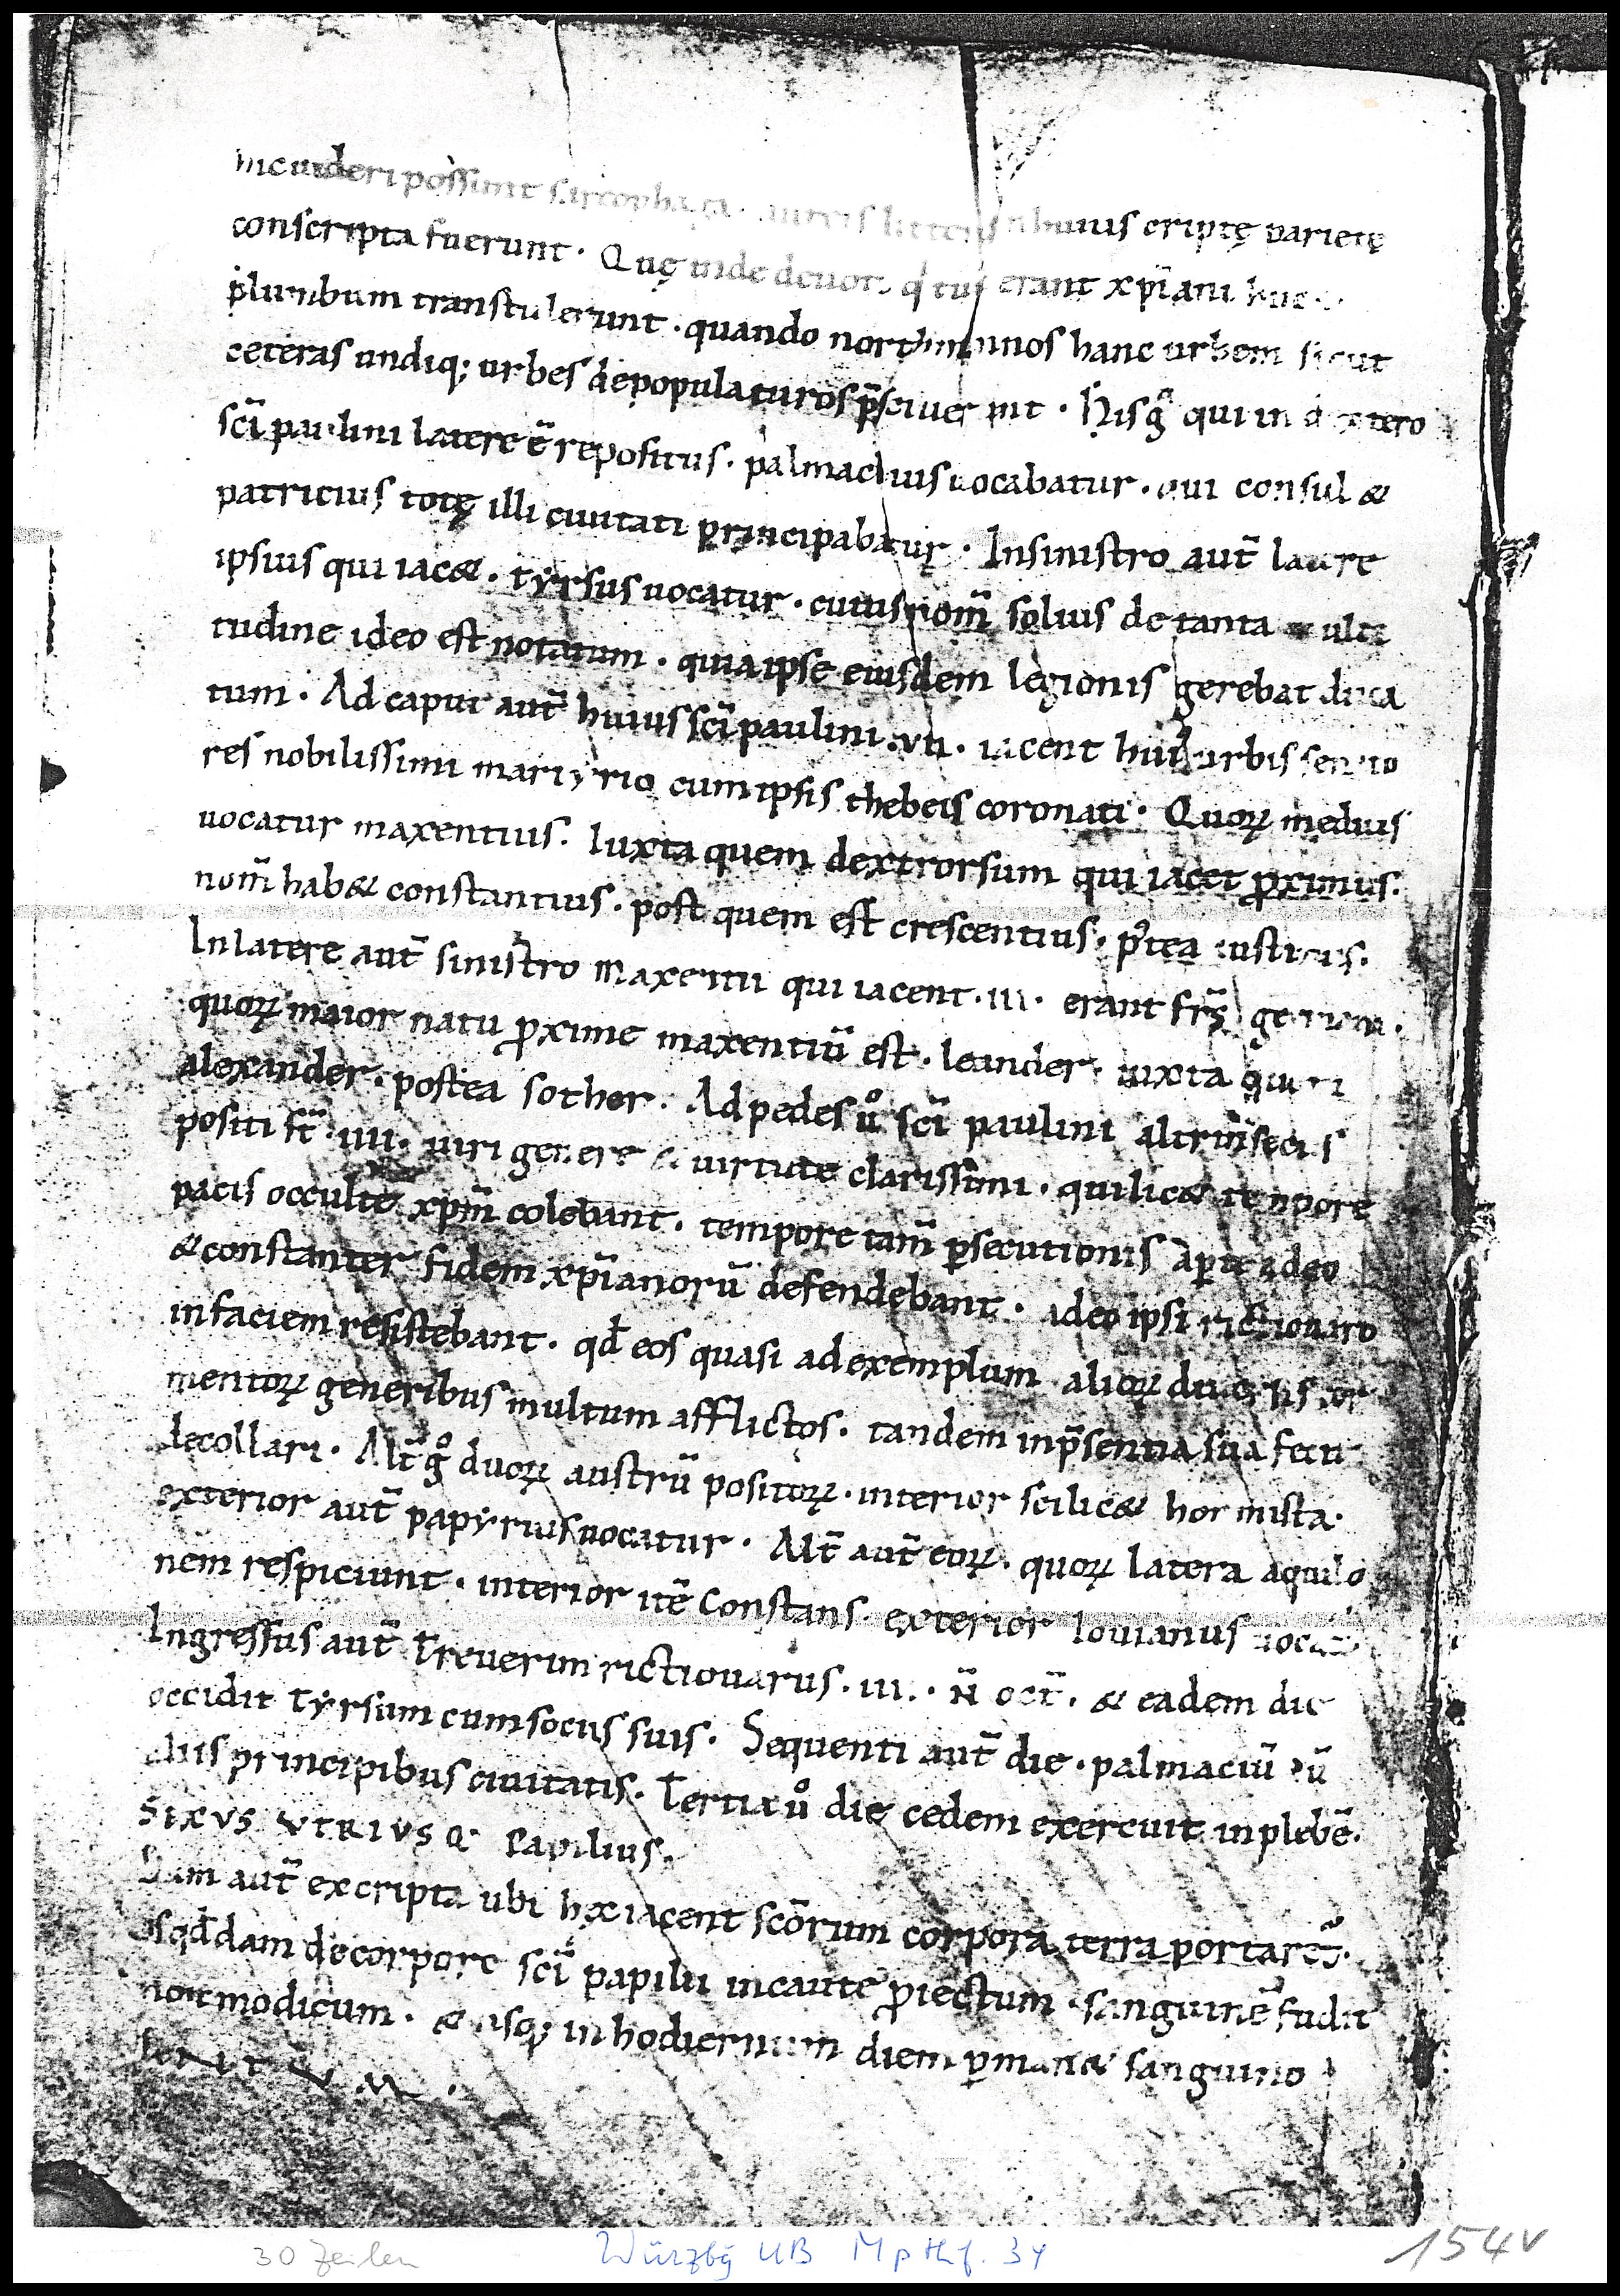 inc uideri possunt sarcophaga. aureis litteris in huius criptę parietę
conscripta fuerunt. Quę inde deuoti q̇ tūc erant xp̄iani huc
plumbum transtulerunt. quando northmannos hanc urbem sicut
ceteras undiq; urbes depopulaturos p̄sciuerunt. His gͦ qui in dextero
sc̄i paulini latere ē repositus. palmachius uocabatur. qui consul &
patricius totę illi ciuitati principabatur. In sinistro aut̄ latere
ipsius qui iac&. tẏrsus uocatur. cuius nom̄ solius de tanta multi
tudine ideo est notatum. quia ipse eiusdem legionis gerebat duca
tum. Ad caput aut̄ huius sc̄i paulini .vii. iacent hui᷒ urbis senato
res nobilissimi martyrio cum ipsis thebeis coronati. Quoꝝ medius
uocatur maxentius. Iuxta quem dextrorsum qui iacet ꝓximus.
nom̄ hab& constantius. post quem est crescentius. p᷒tea iustinus.
In latere aut̄ sinistro maxentii qui iacent .iii. erant frs̄ germani.
quoꝝ maior natu ꝓxime maxentiū est. leander. iuxta quem
alexander. postea sother. Ad pedes uͦ sc̄i paulini altrinsecus
positi st̄ .iiii. uiri genere & uirtute clarissimi. qui lic& tempore
pacis occulte xp̄m colebant. tempore tam̄ ꝑsecutionis aꝑte adeo
& constanter fidem xp̄ianorū defendebant. adeo ipsi rictiouaro
in faciem resistebant. qd̄ eos quasi ad exemplum alioꝝ diuersis tor
mentoꝝ generibus multum afflictos. tandem in p̄sentia sua fecit
decollari. Alt̄ gͦ duoꝝ austrū positoꝝ. interior scilic& hormista.
exterior aut̄ papyrius uocatur. Alt̄ aut̄ eoꝝ. quoꝝ latera aquilo
nem respiciunt. interior itē Constans. exterior Iouianus uocat̄
Ingressus aut̄ Treuerim rictiouarus .iii. N̄ oct̄. & eadem die
occidit Tẏrsum cum sociis suis. Sequenti aut̄ die. palmaciū cū
aliis principibus ciuitatis. Tertia uͦ die cedem exercuit in plebē.
SEXVS VTRIVSQ
Dum aut̄ ex cripta ubi hęc iacent scōrum corpora terra portaret᷒.
os qd̄dam de corpore sc̄i papilii incaute ꝓiectum. sanguinē fudit
non modicum. & usq; in hodiernum diem ꝑman& sanguino